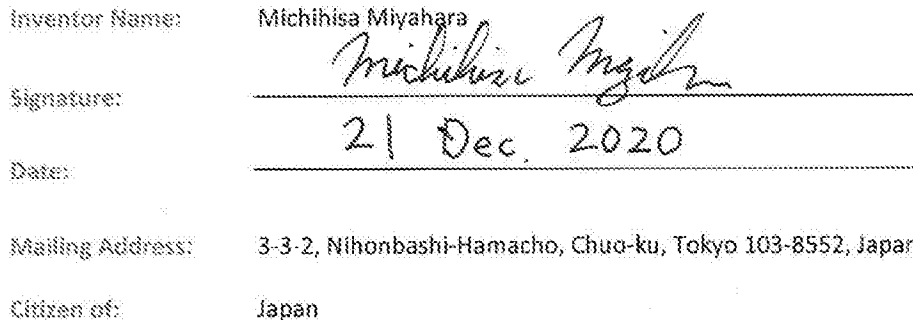 Inventor Name: Michihisa Miyahara
Signature: Michihisa Miyahara
21 Dec. 2020
Date:
Mailing Address: 3-3-2, Nihonbashi-Hamacho, Chuo-ku, Tokyo 103-8552, Japan
Citizen of: Japan